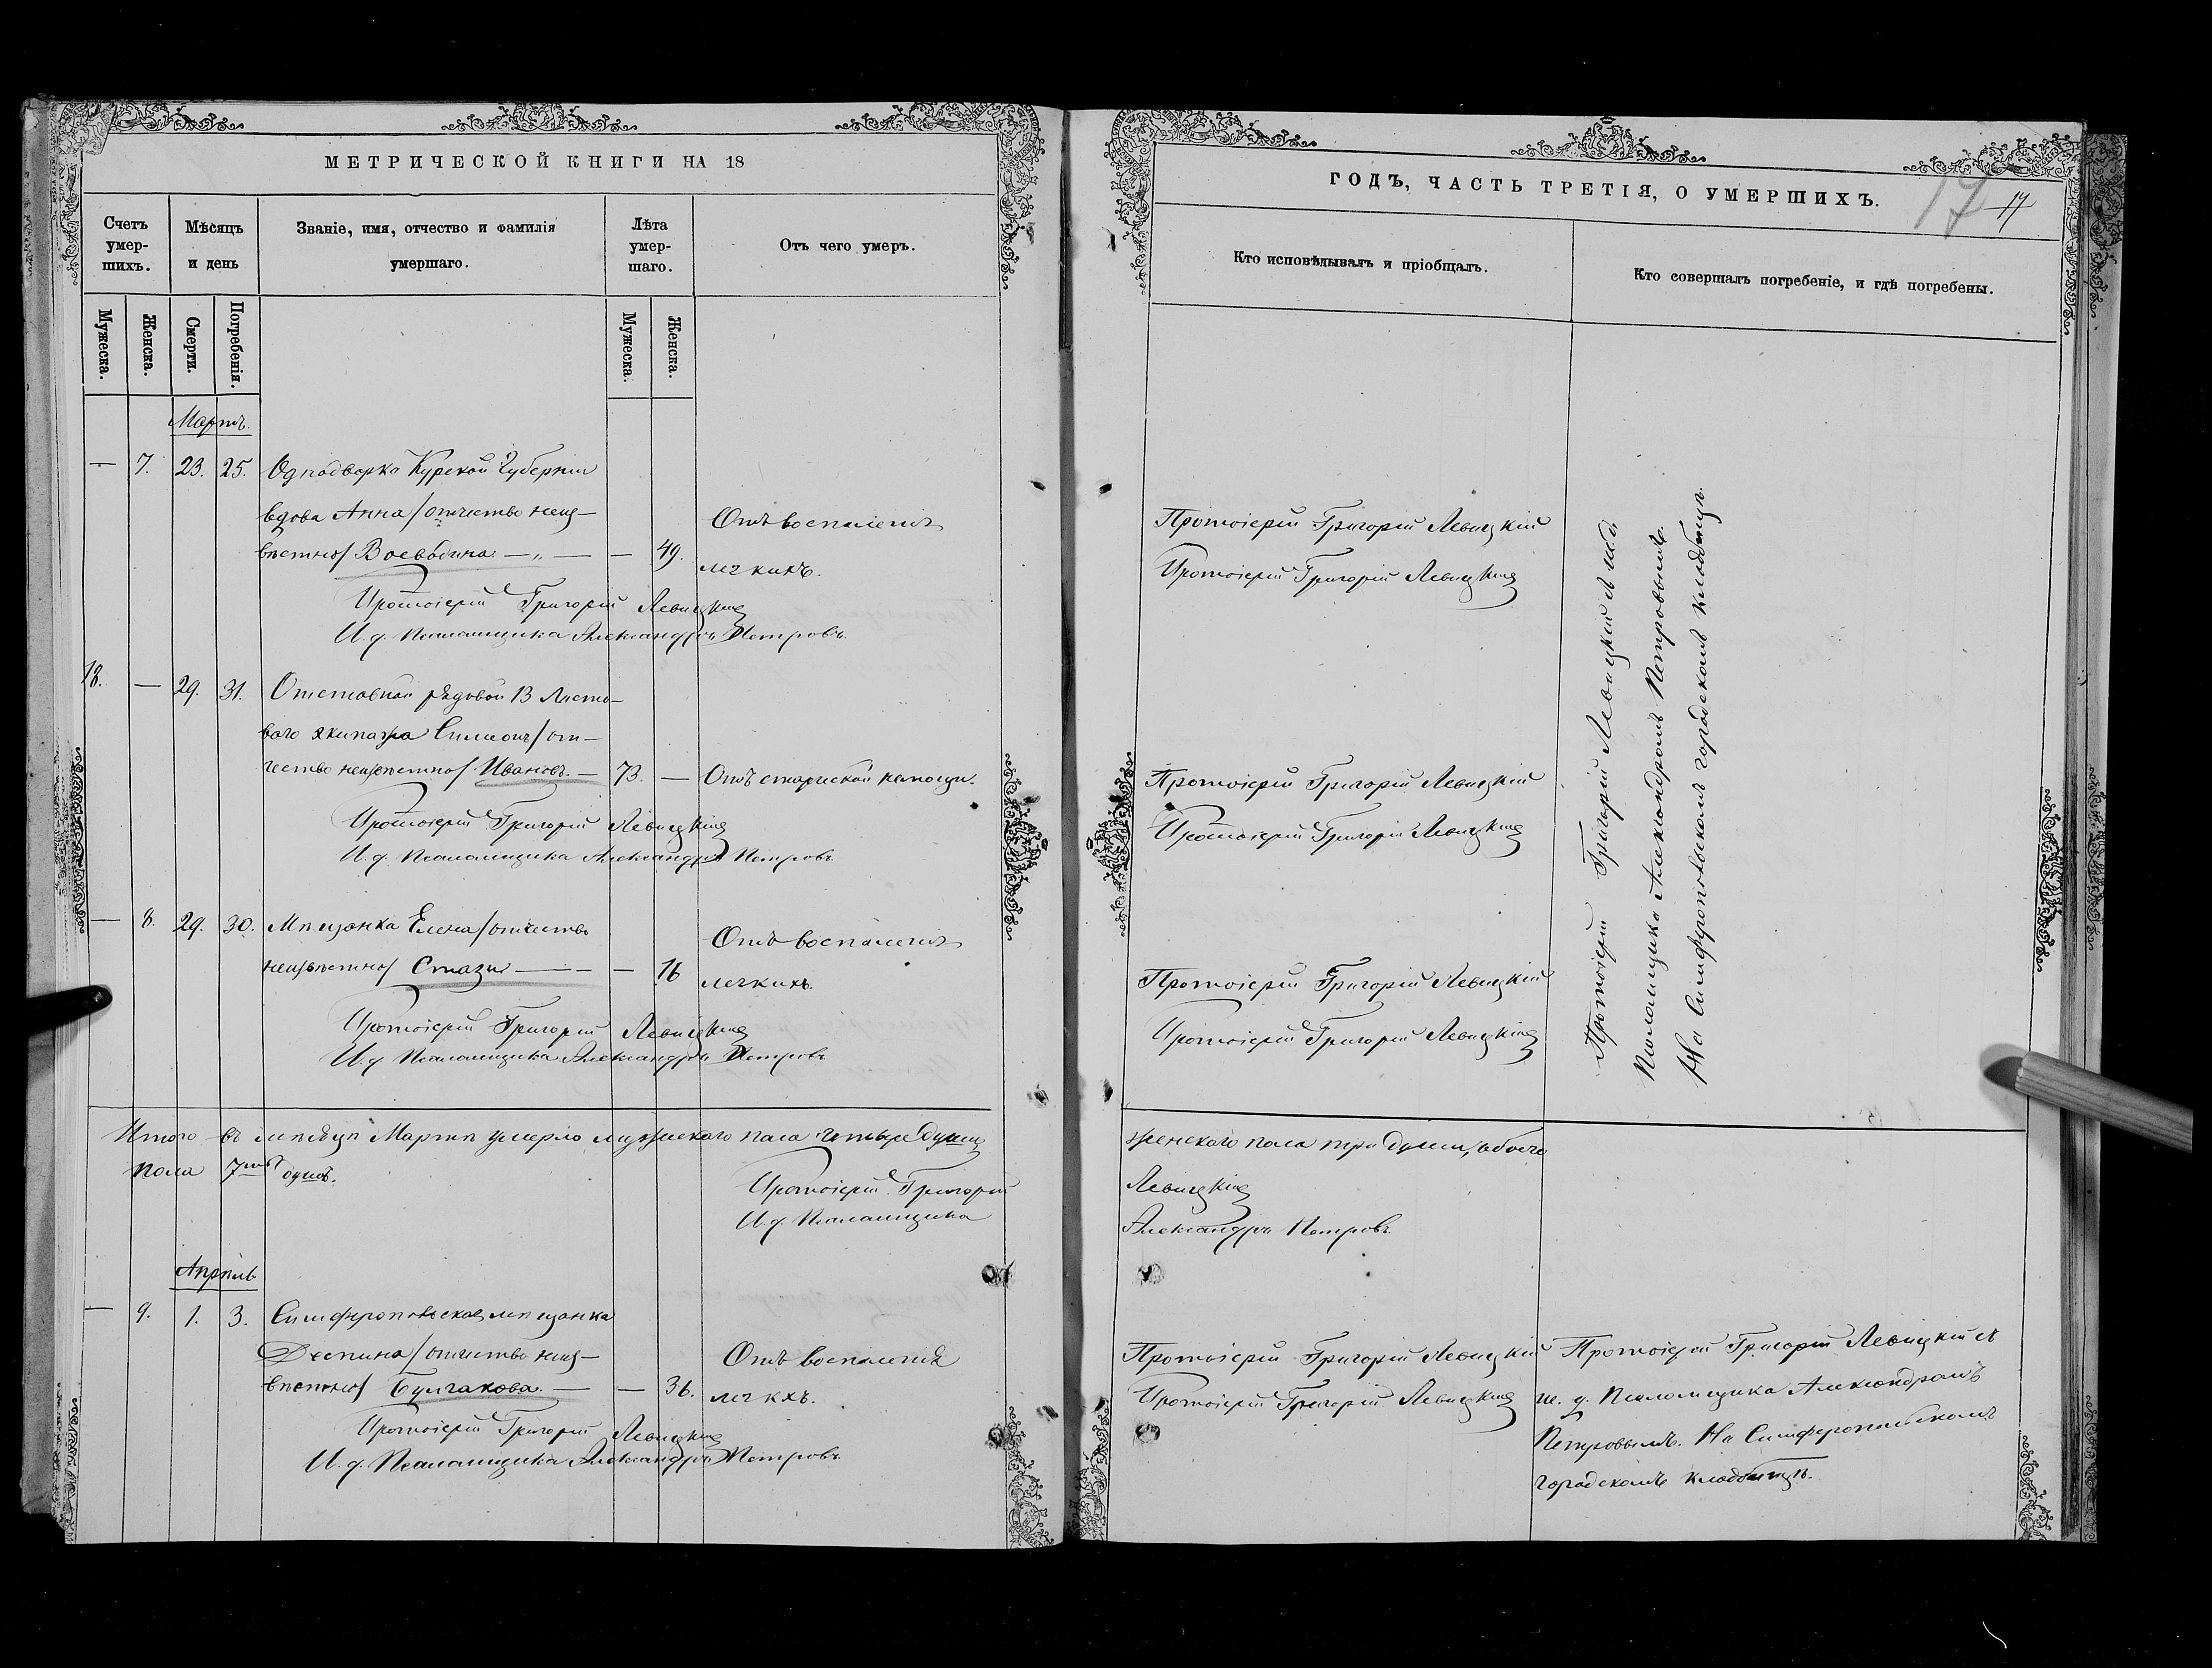 МЕТРИЧЕСКОЙ КНИГИ НА 18
Счетъ умер-шихъ.
Мѣсяцъ и день
Званіе, имя, отчество и фамилія умершаго.
Лѣта умер-шаго.
Отъ чего умеръ.
Мужеска.
Женска.
Смерти.
Погребенія.
Мужеска.
Женска.
Мартъ.
— 7. 23. 25. Однодворка Курской Губерніи
вдова Анна /отчество неиз-
вѣстно/ Воеводина — „ — — 49. Отъ воспаленія
легкихъ.
Протоіерей Григорій Левицкій
И. д. Псаломщика Александръ Петровъ
18. — 29. 31. Отставной рядовой 13 Ласто-
ваго экипажа Симеонъ /от-
чество неизвѣстно/ Ивановъ. — 73. — Отъ старческой немощи.
Протоіерей Григорій Левицкій
И. д. Псаломщика Александръ Петровъ
— 8. 29. 30. Мѣщанка Елена /отчество
неизвѣстно/ — — 16 Отъ воспаленія
легкихъ.
Протоіерей Григорій Левицкій
И. д. Псаломщика Александръ Петровъ
Итого въ мѣсяцѣ Мартѣ умерло мужескаго пола четыре души
пола 7мь душъ.
Протоіерей Григорій
И. д. Псаломщика
Апрѣль
— 9. 1. 3. Симферопольская мѣщанка
Деспина /отчество неиз-
вѣстно/ Булгакова. — — 36. Отъ воспаленія
легкхъ.
Протоіерей Григорій Левицкій
И. д. Псаломщика Александръ Петровъ
ГОДЪ, ЧАСТЬ ТРЕТІЯ, О УМЕРШИХЪ.
17
17
Кто исповѣдывалъ и пріобщалъ.
Кто совершалъ погребеніе, и гдѣ погребены.
Протоіерей Григорій Левицкій
Протоіерей Григорій Левицкій
Протоіерей Григорій Левицкій
Протоіерей Григорій Левицкій
Протоіерей Григорій Левицкій
Протоіерей Григорій Левицкій
Протоіерей Григорій Левицкій съ и. д.
Псаломщика Александромъ Петровымъ.
На Симферопольскомъ городскомъ кладбищѣ.
женскаго пола три души, обоего
Левицкій
Александръ Петровъ
Протоіерей Григорій Левицкій
Протоіерей Григорій Левицкій
Протоіерей Григорій Левицкій съ
и. д. Псаломщика Александромъ
Петровымъ. На Симферопольскомъ
городскомъ кладбищѣ.